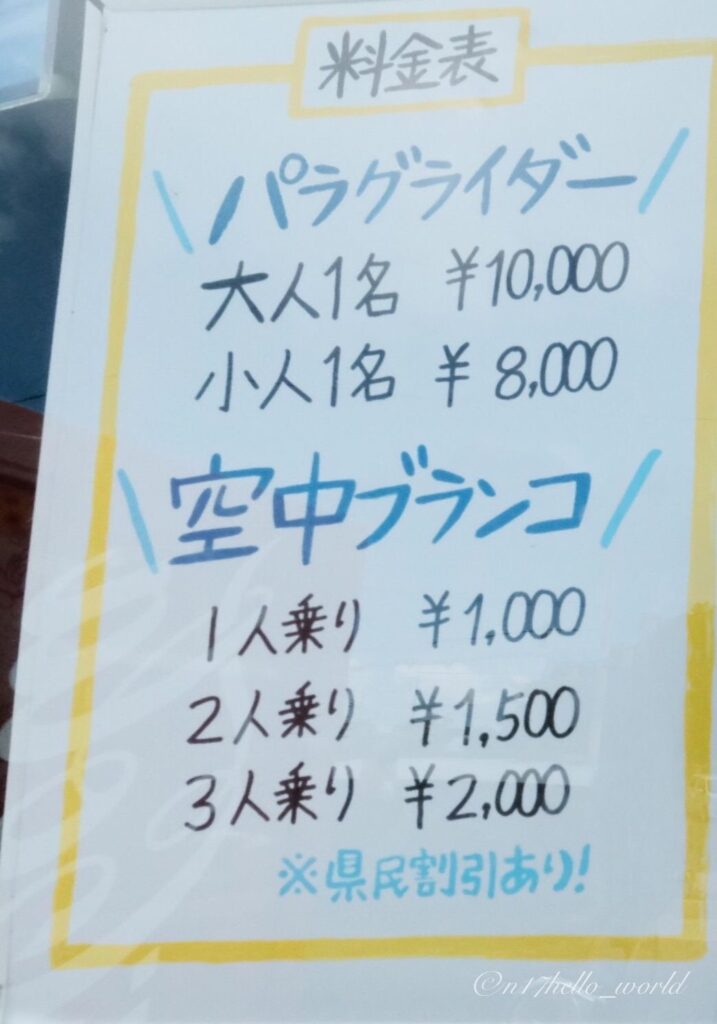 料金表
\パラグライダー/
大人1名 ¥10,000
小人1名 ¥8,000
\空中ブランコ/
1人乗り ¥1,000
2人乗り ¥1,500
3人乗り ¥2,000
※県民割引あり!
©n17hello_world